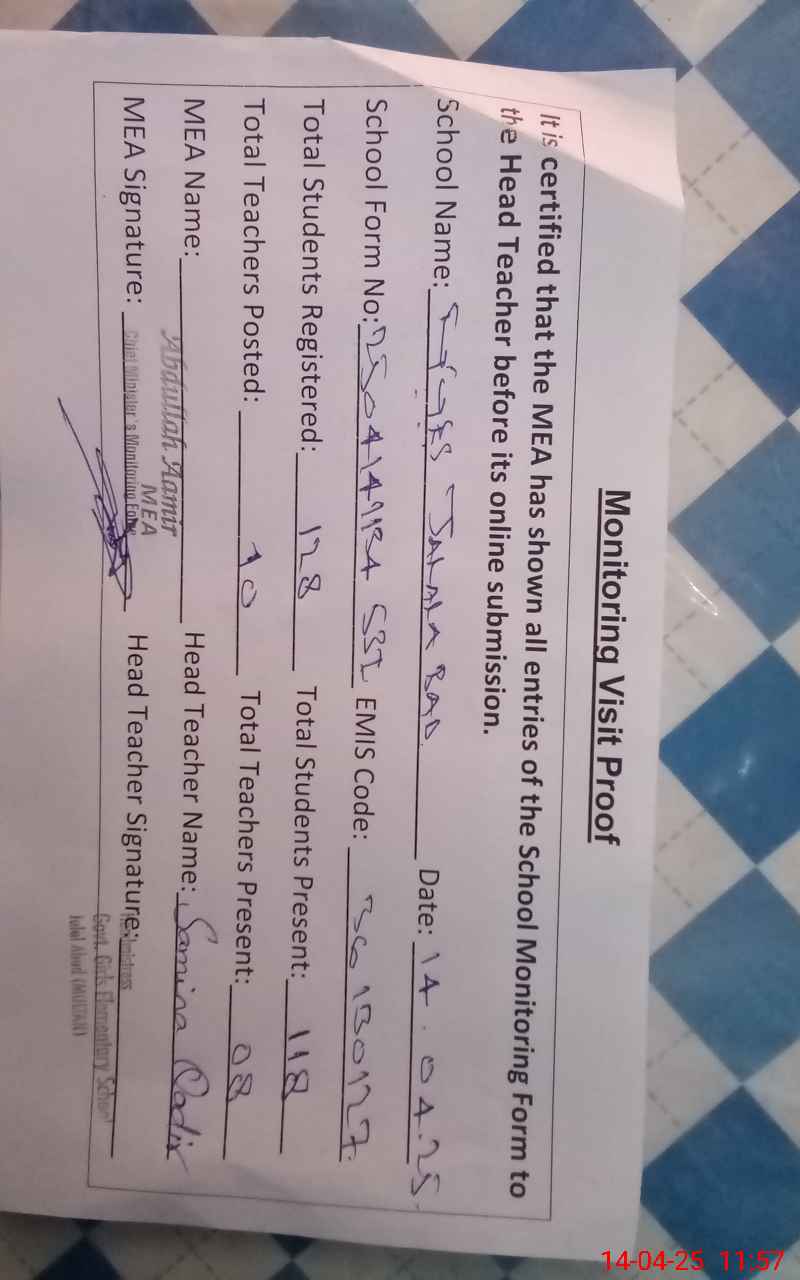 Monitoring Visit Proof
It is certified that the MEA has shown all entries of the School Monitoring Form to
the Head Teacher before its online submission.
School Name: JALALA BAD. Date: 14.04.25
School Form No: EMIS Code:
Total Students Registered: 128 Total Students Present: 118
Total Teachers Posted: 10 Total Teachers Present: 08
MEA Name: Abdullah Aamir Head Teacher Name: Samina Qadir
MEA
MEA Signature: Chief Minister's Monitoring Force Head Teacher Signature:
Govt. Girls Elementary School
Jalal Abad (MULTAN)
14-04-25 11:57